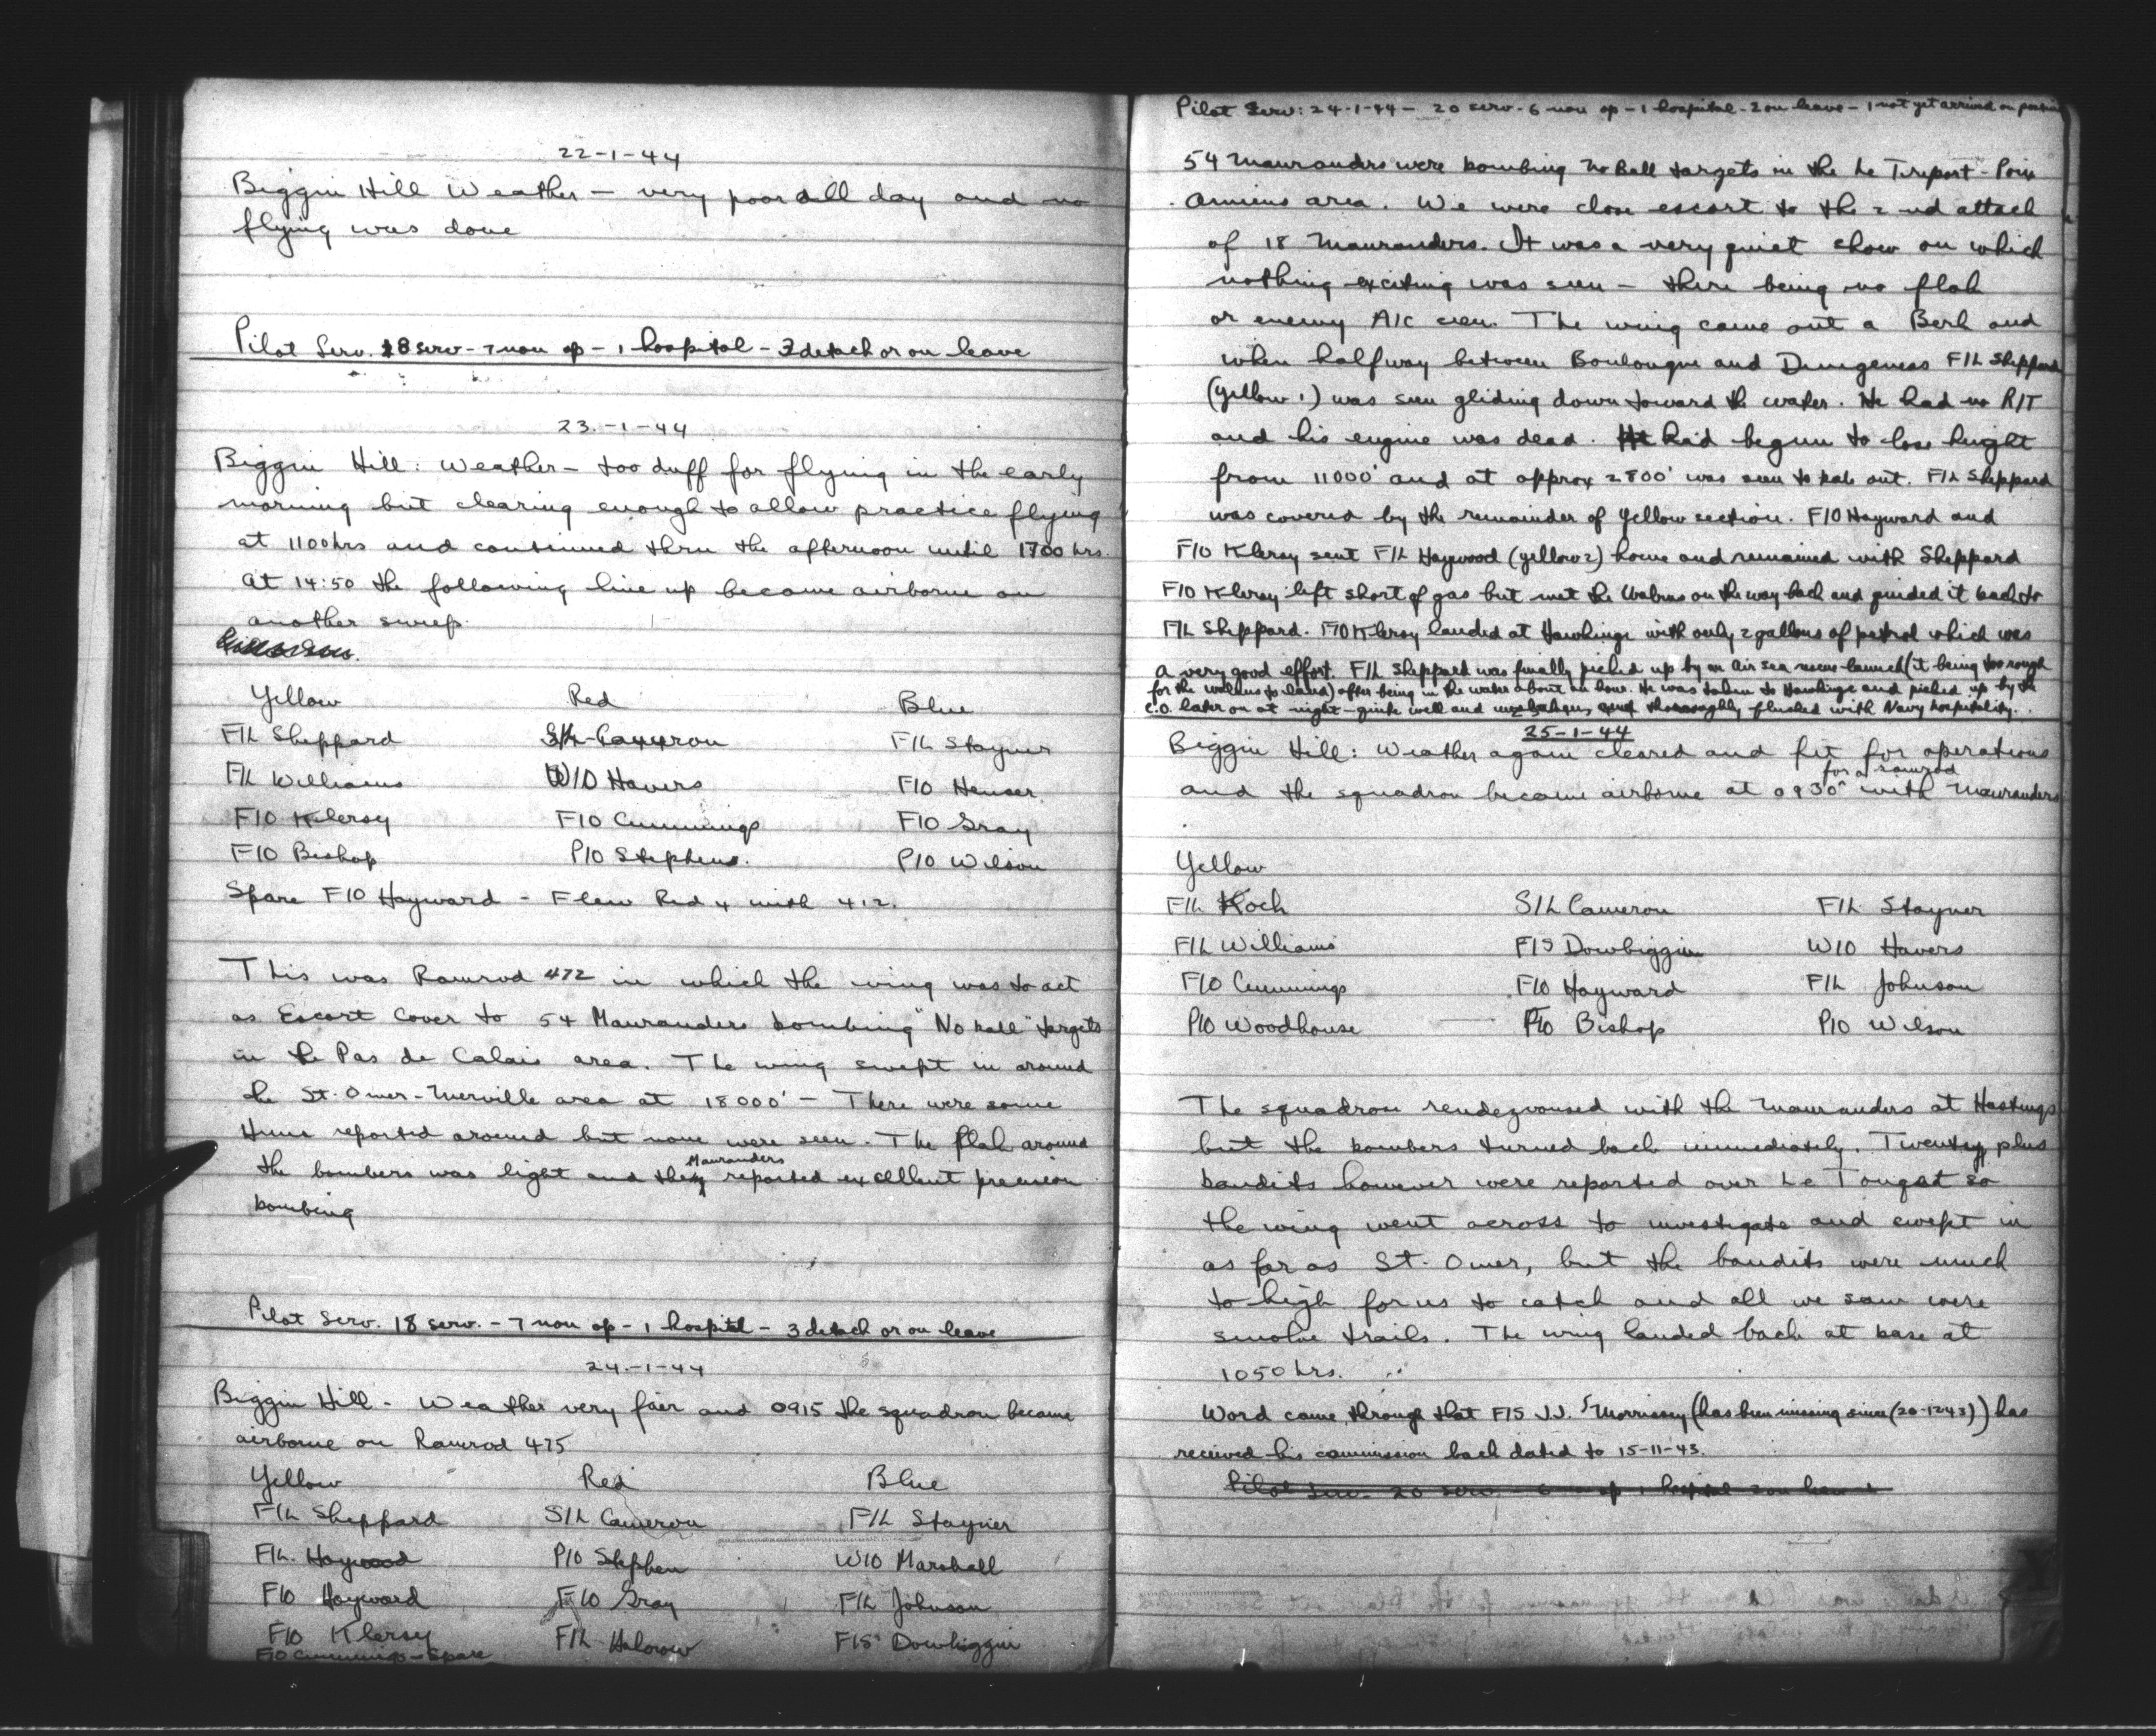 22-1-44
Biggin Hill Weather - very poor all day and no
flying was done
Pilot Serv. 18 serv - 7 non op - 1 hospital - 3 detach or on leave
23.-1-44
Biggin Hill: Weather - too duff for flying in the early
morning but clearing enough to allow practice flying
at 1100 hrs and continued thru the afternoon until 1700 hrs.
At 14:50 the following line up became airborne on
another sweep.
Yellow Red Blue
F/L Sheppard S/L Cameron F/L Stayner
F/L Williams W/O Havers F/O Heuser
F/O Klersy F/O Cummings F/O Gray
F/O Bishop P/O Stephens. P/O Wilson
Spare F/O Hayward - Flew Red 4 with 412.
This was Ramrod 472 in which the wing was to act
as Escort Cover to 54 Maurauders bombing "No ball" targets
in the Pas de Calais area. The wing swept in around
the St. Omer-Merville area at 18000' - There were some
Huns reported around but none were seen. The flak around
the bombers was light and the Maurauders reported excellent precision
bombing
Pilot Serv. 18 serv. - 7 non op - 1 hospital - 3 detach or on leave
24.-1-44
Biggin Hill - Weather very fair and 0915 the squadron became
airborne on Ramrod 475
Yellow Red Blue
F/L Sheppard S/L Cameron F/L Stayner
F/L. Haywood P/O Stephen W/O Marshall
F/O Hayward F/O Gray F/L Johnson
F/O Klersy F/L Halcrow F/S Dowbiggin
F/O Cummings - Spare
Pilot Serv: 24-1-44 - 20 serv - 6 non op - 1 hospital - 2 on leave - 1 not yet arrived on posting
54 Maurauders were bombing No Ball targets in the Le Treport - Poix
Amiens area. We were close escort to the 2nd attack
of 18 Maurauders. It was a very quiet show on which
nothing exciting was seen - there being no flak
or enemy A/C seen. The wing came out a Berk and
when halfway between Boulougne and Dungeness F/L Sheppard
(yellow 1) was seen gliding down toward the water. He had no R/T
and his engine was dead. He had begun to lose height
from 11000' and at approx 2800' was seen to bale out. F/L Sheppard
was covered by the remainder of Yellow section. F/O Hayward and
F/O Klersy sent F/L Haywood (yellow 2) home and remained with Sheppard
F/O Klersy left short of gas but met the Walrus on the way back and guided it back to
F/L Sheppard. F/O Klersy landed at Hawkinge with only 2 gallons of petrol which was
a very good effort. F/L Sheppard was finally picked up by an air sea rescue launch (it being too rough
for the walrus to land) after being in the water about an hour. He was taken to Hawkinge and picked up by the
C.O. later on at night - quite well and thoroughly flushed with Navy hospitality.
25-1-44
Biggin Hill: Weather again cleared and fit for operations
and the squadron became airborne at 0930 for a ramrod with Maurauders
Yellow
F/L Koch S/L Cameron F/L Stayner
F/L Williams F/S Dowbiggin W/O Havers
F/O Cummings F/O Hayward F/L Johnson
P/O Woodhouse F/O Bishop P/O Wilson
The squadron rendezvoused with the Maurauders at Hastings
but the bombers turned back immediately. Twenty plus
bandits however were reported over Le Touqet so
the wing went across to investigate and swept in
as far as St. Omer, but the bandits were much
to high for us to catch and all we saw were
smoke trails. The wing landed back at base at
1050 hrs.
Word came through that F/S J.J. Morrissey (has been missing since (20-12-43)) has
received his commission back dated to 15-11-43.